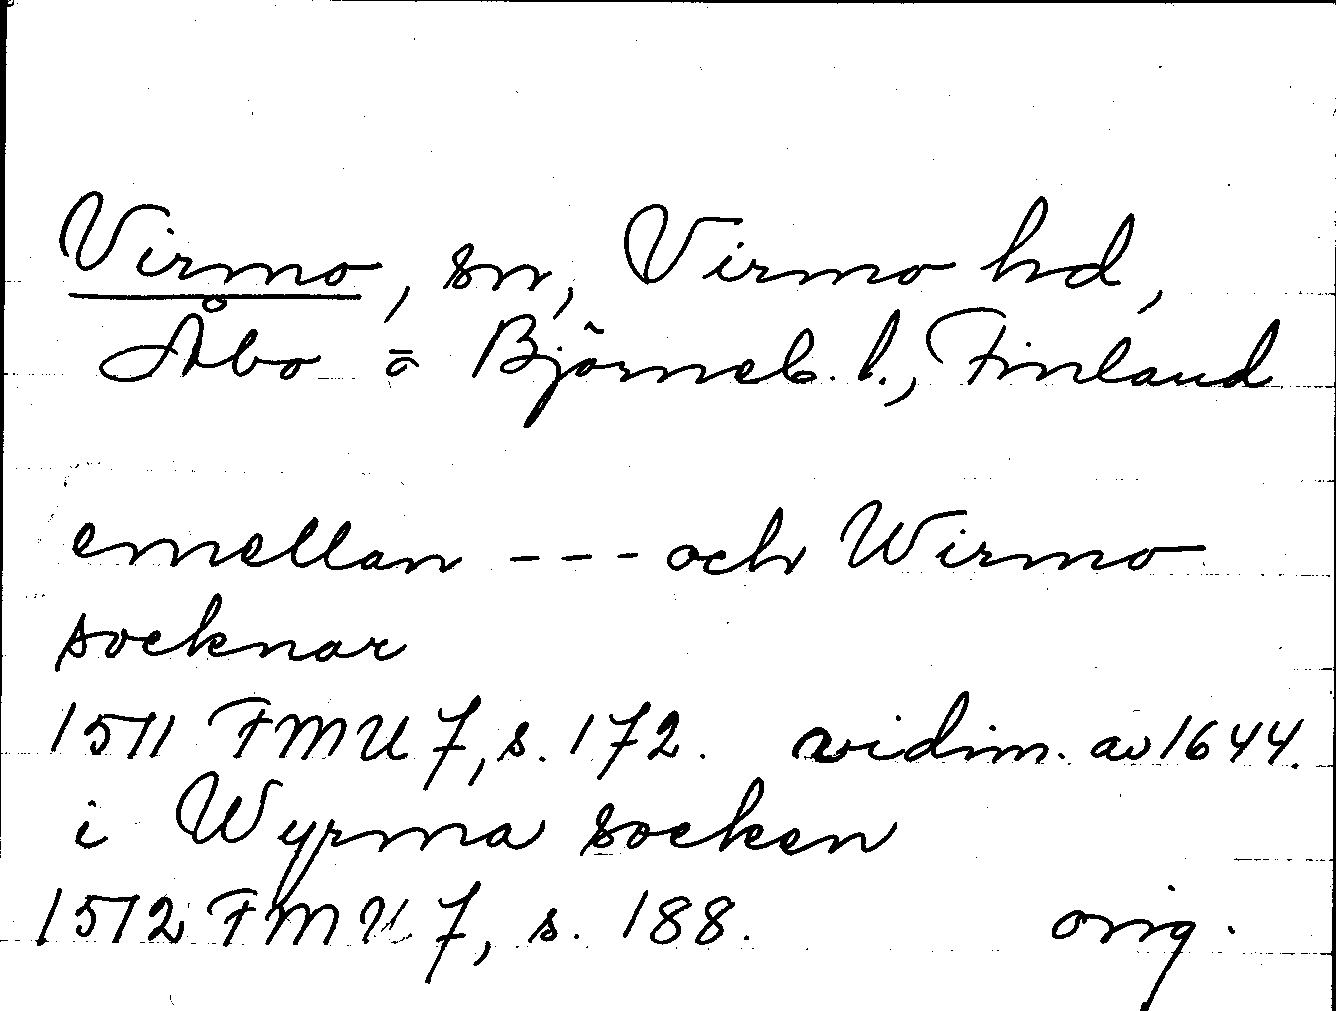 Virmo, sn, Virmo hd,
Åbo o Björneb. l., Finland
emellan --- och Wirmo
socknar
1511 FMU 7, s. 172. vidim. av 1644.
i Wyrma socken
1512 FMU 7, s. 188. orig.